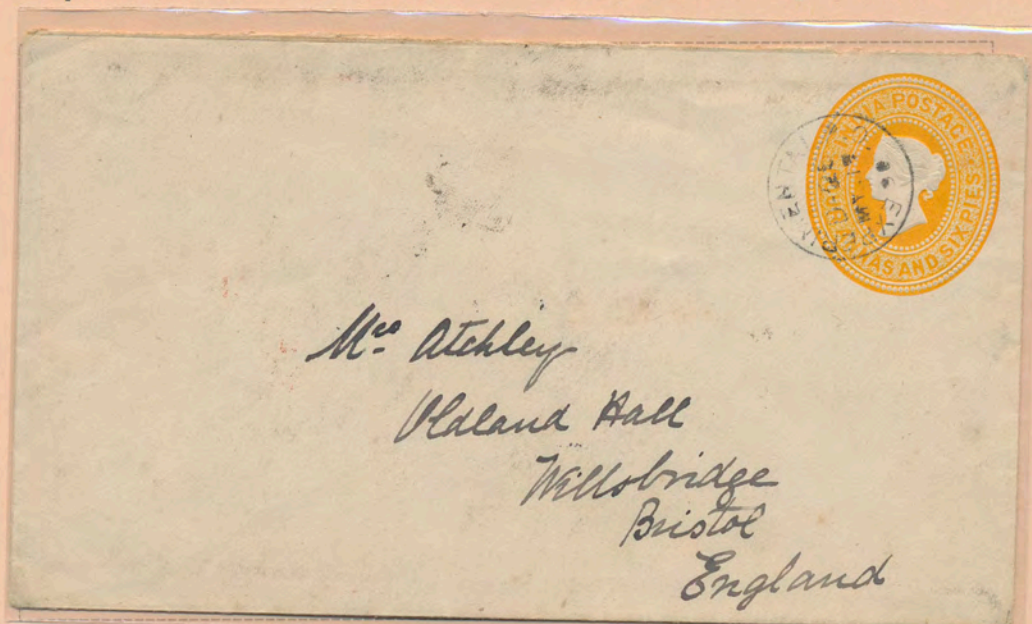 INDIA POSTAGE
FOUR ANNAS AND SIX PIES
Mrs Atchley
Oldland Hall
Willsbridge
Bristol
England